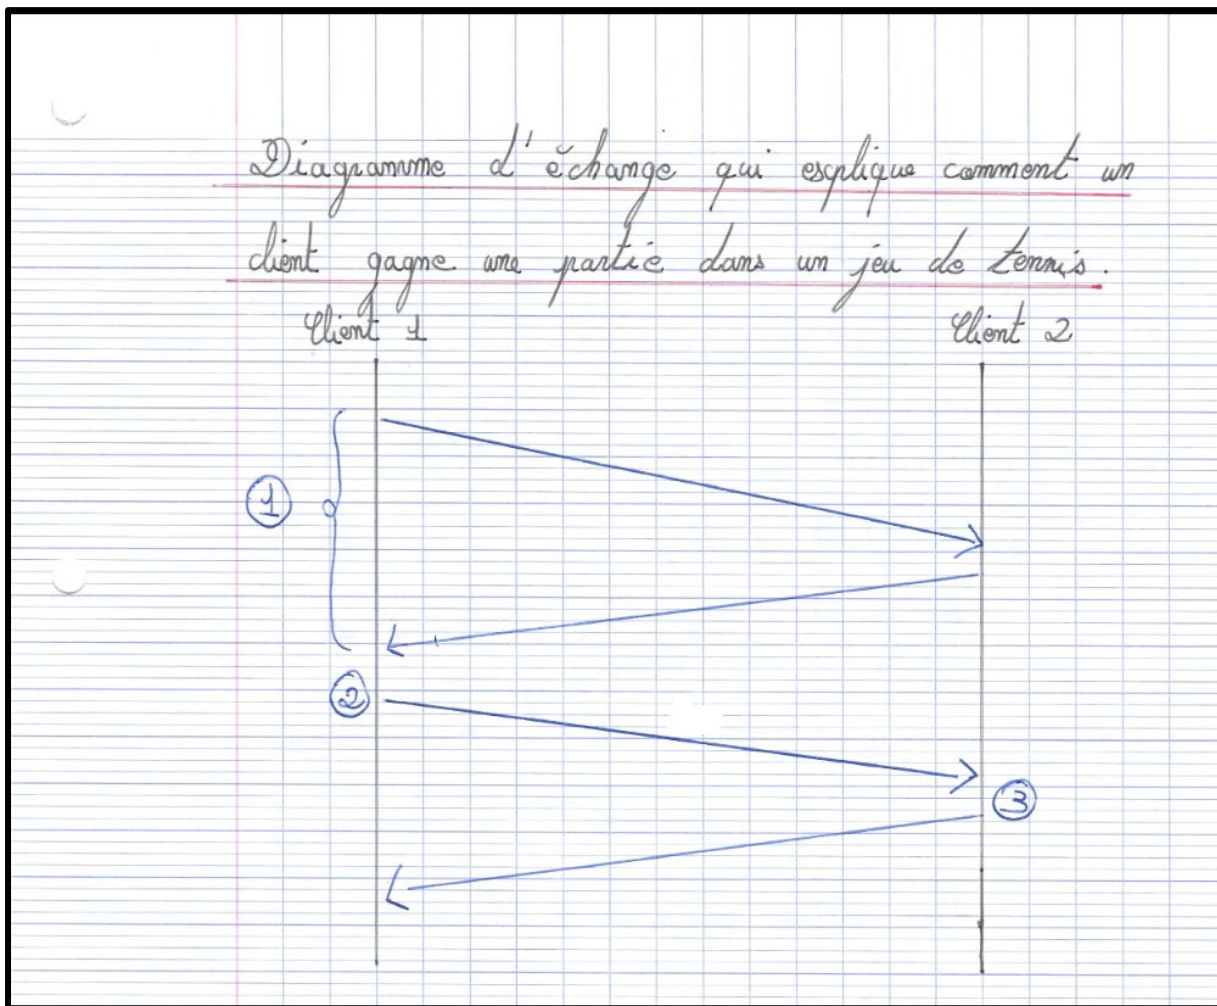 Diagramme d'échange qui esplique comment un
client gagne une partie dans un jeu de tennis.
Client 1
Client 2
1
2
3